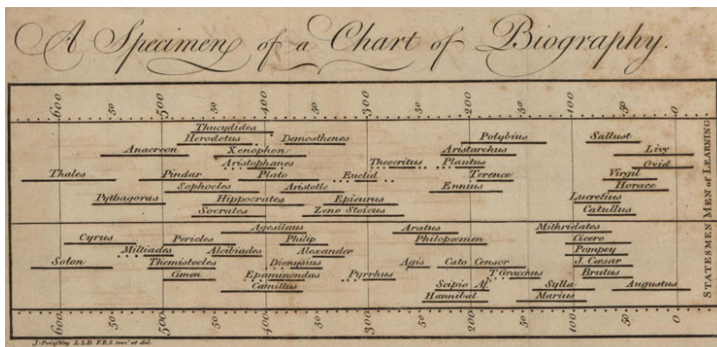 A Specimen of a Chart of Biography.
600 50 500 50 400 50 300 50 200 50 100 50 0
Thucydides
Herodotus Demosthenes Polybius Sallust
Anacreon Xenophon Aristarchus Livy
Aristophanes Theocritus Plautus Ovid
Thales Pindar Plato Euclid Terence Virgil
Sophocles Aristotle Ennius Horace
Pythagoras Hippocrates Epicurus Lucretius
Socrates Zeno Stoicus Catullus
Men of Learning
Agesilaus Aratus Mithridates
Cyrus Pericles Philip Philopoemen Cicero
Miltiades Alcibiades Alexander Pompey
Solon Themistocles Dionysius Agis Cato Censor J. Cæsar
Cimon Epaminondas Pyrrhus T Gracchus Brutus
Camillus Scipio Af. Sylla Augustus
Hannibal Marius
Statesmen
600 50 500 50 400 50 300 50 200 50 100 50 0
J. Priestley L.L.D. F.R.S. inv.t et del.